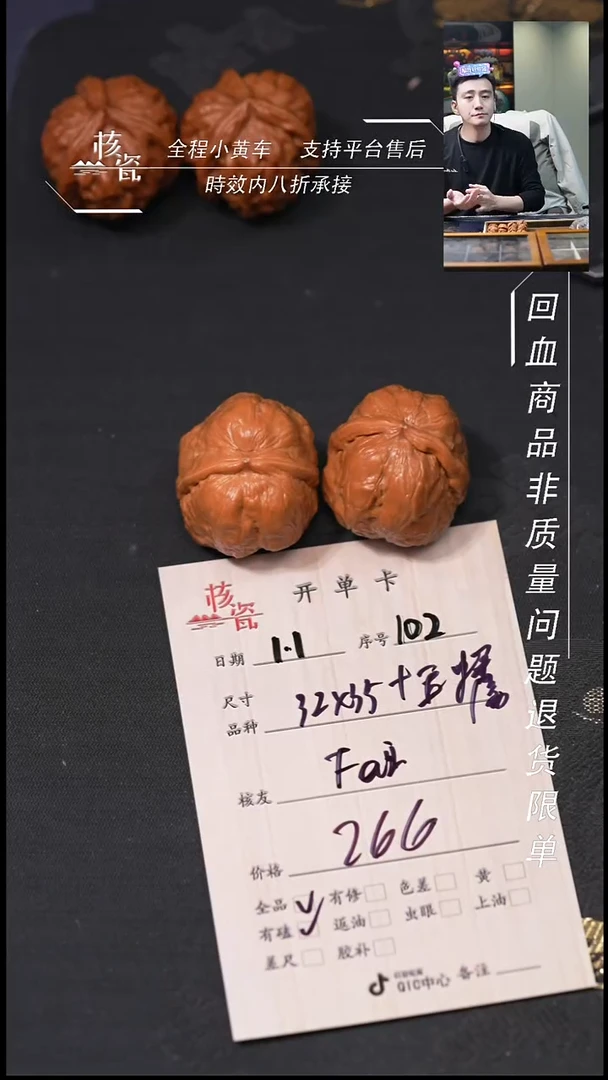 核瓷
全程小黄车 支持平台售后
時效内八折承接
回血商品非质量问题退货限单
核瓷
开单卡
日期 1.1 序号 102
尺寸
品种 32X35
核友
价格 266
全品 有修 色差 黄
有磕 返油 虫眼 上油
差尺 胶补
QIC中心 备注